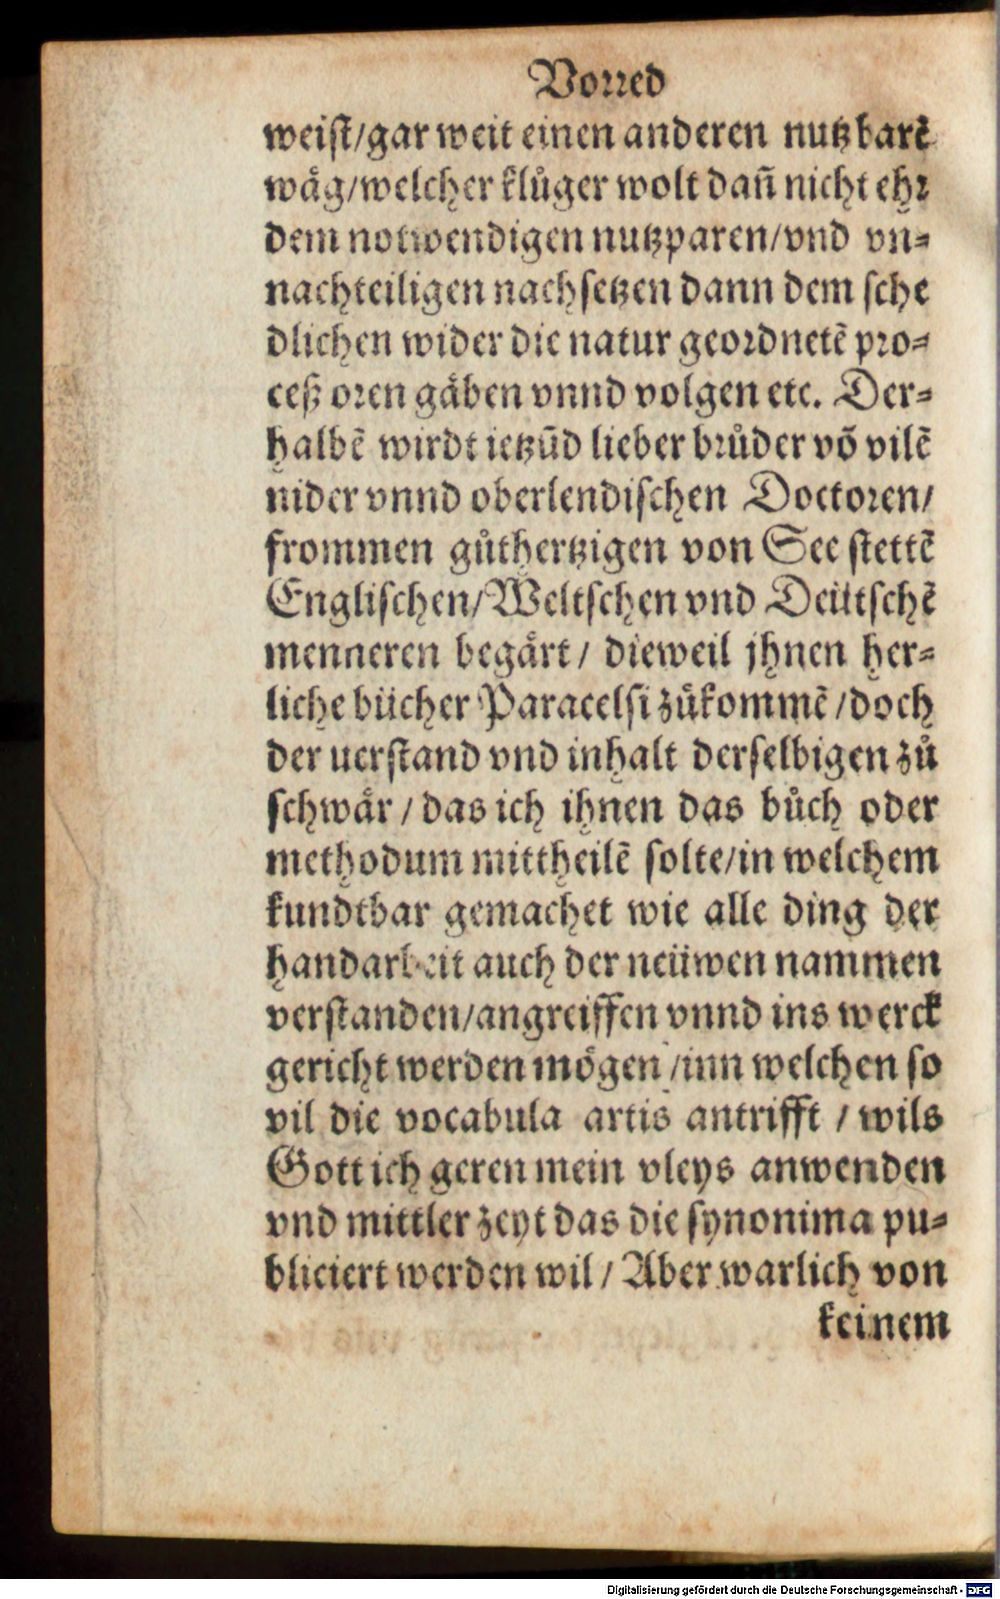 Vorred
weist/gar weit einen anderen nutzbarẽ
wåg/welcher klůger wolt dañ nicht ehr
dem notwendigen nutzparen/vnd vn=
nachteiligen nachsetzen dann dem sche
dlichen wider die natur geordnetẽ pro=
ceß oren gåben vnnd volgen etc. Der=
halbẽ wirdt ietzũd lieber brůder võ vilẽ
nider vnnd oberlendischen Doctoren/
frommen gůthertzigen von See stettẽ
Englischen/Weltschen vnd Deütschẽ
menneren begårt/ dieweil jhnen her=
liche bücher Paracelsi zůkommẽ/doch
der uerstand vnd inhalt derselbigen zů
schwår/das ich ihnen das bůch oder
methodum mittheilẽ solte/in welchem
kundtbar gemachet wie alle ding der
handarbeit auch der neüwen nammen
verstanden/angreiffen vnnd ins werck
gericht werden mögen/inn welchen so
vil die vocabula artis antrifft/wils
Gott ich geren mein vleys anwenden
vnd mittler zeyt das die synonima pu=
bliciert werden wil/Aber warlich von
keinem
Digitalisierung gefördert durch die Deutsche Forschungsgemeinschaft - DFG